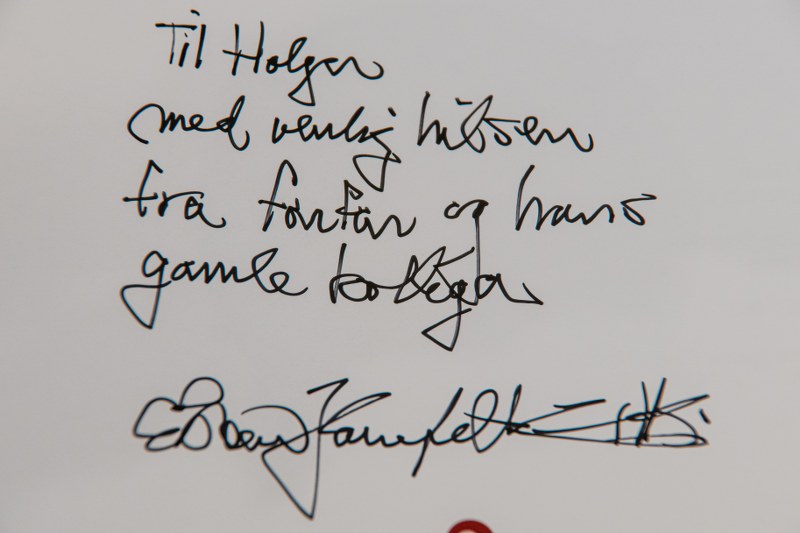 Til Holger
med venlig hilsen
fra forfar og hans
gamle kollega
Ebbe